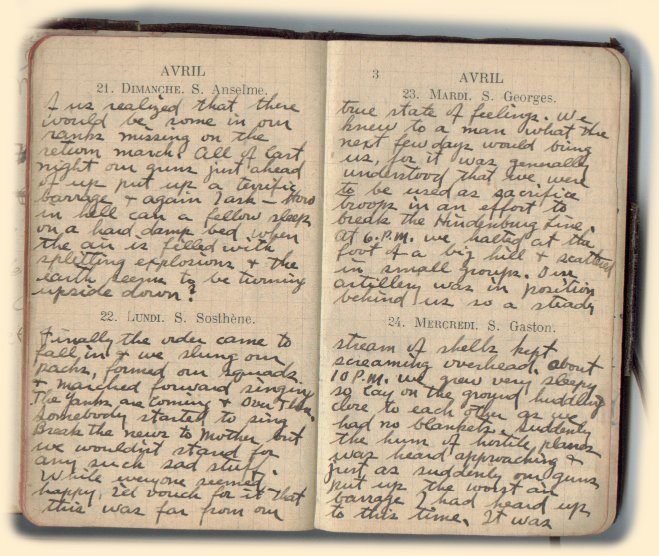 AVRIL
21. DIMANCHE. S. Anselme.
of us realized that there
would be some in our
ranks missing on the
return march. All of last
night our guns just ahead
of us put up a terrific
barrage & again I ask - How
in hell can a fellow sleep
on a hard damp bed when
the air is filled with
splitting explosions & the
earth seems to be turning
upside down?
22. LUNDI. S. Sosthène.
Finally the order came to
fall in & we slung our
packs, formed our squads
& marched forward singing
The Yanks are Coming & Over There.
Somebody started to sing
Break the news to Mother but
we wouldn't stand for
any such sad stuff.
While everyone seemed
happy, I'd vouch for it that
this was far from our
3
AVRIL
23. MARDI. S. Georges.
true state of feelings. We
knew to a man what the
next few days would bring
us, for it was generally
understood that we were
to be used as sacrifice
troops in an effort to
break the Hindenburg Line.
At 6 P.M. we halted at the
foot of a big hill & scattered
in small groups. Our
artillery was in position
behind us so a steady
24. MERCREDI. S. Gaston.
stream of shells kept
screaming overhead. about
10 P.M. we grew very sleepy
so lay on the ground huddling
close to each other as we
had no blankets. Suddenly
the hum of hostile planes
was heard approaching &
just as suddenly our guns
put up the worst air
barrage I had heard up
to this time. It was